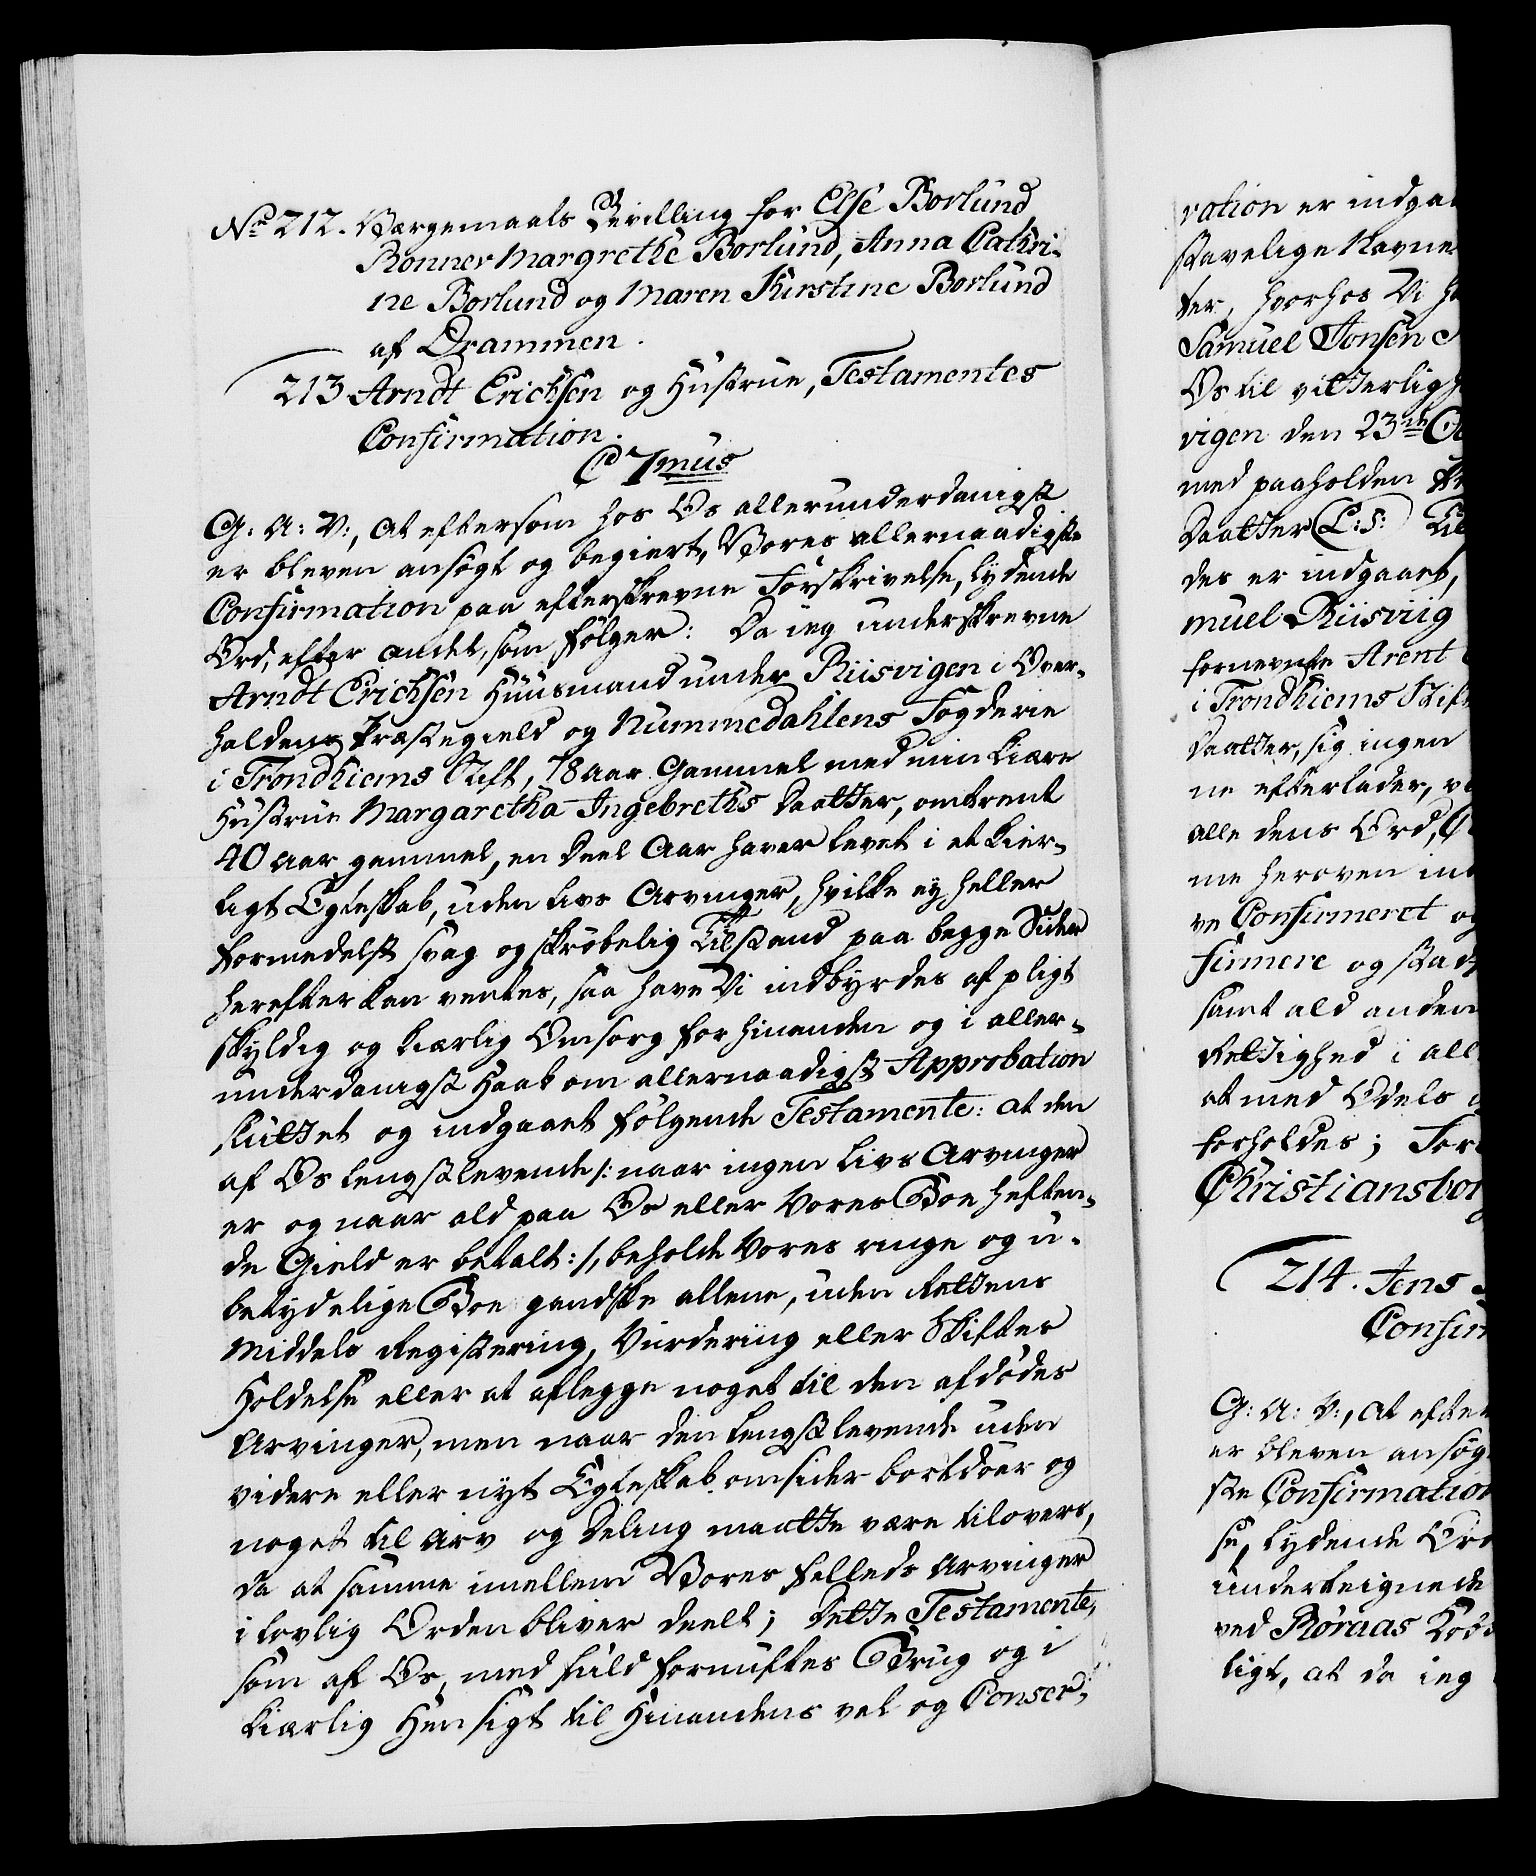 No 212. Værgemaals Bevilling for Else Borlund
Ronner Margrethe Borlund, Anna Cathri-
ne Borlund og Maren Kirstine Borlund
af Drammen.
213 Arndt Erichsen og Hustrue, Testamentes
Confirmation.
C 7mus
G: A: V:, at eftersom hos Os allerunderdanigst
er bleven ansøgt og begiert, Vores allernaadigste
Confirmation paa efterskrevne Forskrivelse, lydende
Ord, efter andet, som følger: Da ieg underskrevne
Arndt Erichsen Huusmand under Riisvigen i Over-
haldens Præstegield og Nummedahlens Fogderie
i Trondhiems Stift, 78 aar Gammel med min kiære
Hustrue Margaretha Ingebreths Daatter, omtrent
40 aar gammel, en deel Aar haver levet i et kier-
ligt Egteskab, uden livs Arvinger, hvilke ey heller
formedelst svag og skrøbelig Tilstand paa begge Sider
herefter kan ventes, saa have Vi indbyrdes af pligt
skyldig og kiærlig Omsorg for hinanden og i aller-
underdanigst Haab om allernaadigst Approbation
sluttet og indgaaet følgende Testamente: at den
af Os lengstlevende /: naar ingen livs Arvinger
er og naar ald paa Os eller Vores Boe heften-
de Gield er betalt :/, beholde Vores ringe og u-
betydelige Boe gandske allene, uden Rettens
Middels Registering, Vurdering eller Skiftes
Holdelse eller at aflegge noget til den afdødes
Arvinger, men naar den lengstlevende uden
videre eller nyt Egteskab omsider bortdøer og
noget til Arv og Deling maatte være tilovers,
da at samme imellem Vores fælleds Arvinger
i lovlig Orden bliver deelt; Dette Testamente,
som af Os, med fuld fornuftes Brug og i
kiærlig Hensigt til Hinandens vel og Conser-
vation er indga
stavelige Navne
ter, hvorhos Vi h
Samuel Jonsen
Os til vitterligh
vigen den 23de
med paaholden
Daatter (L:S:)
des er indgaaet,
muel Riisviig
fornevnte Arent
i Trondhiems Stift
Daatter, sig ingen
ne efterlader, v
alle dens Ord,
me heroven in
ve Confirmeret og
firmere og stad
samt ald anden
Rettighed i all
at med Odels
forholdes; For
Christiansbor
214. Jens
Confir
G: A: V:, at efter
er bleven ansøg
ste Confirmation
se, lydende Ord
underteignede
ved Røraas Kob
ligt, at da ieg